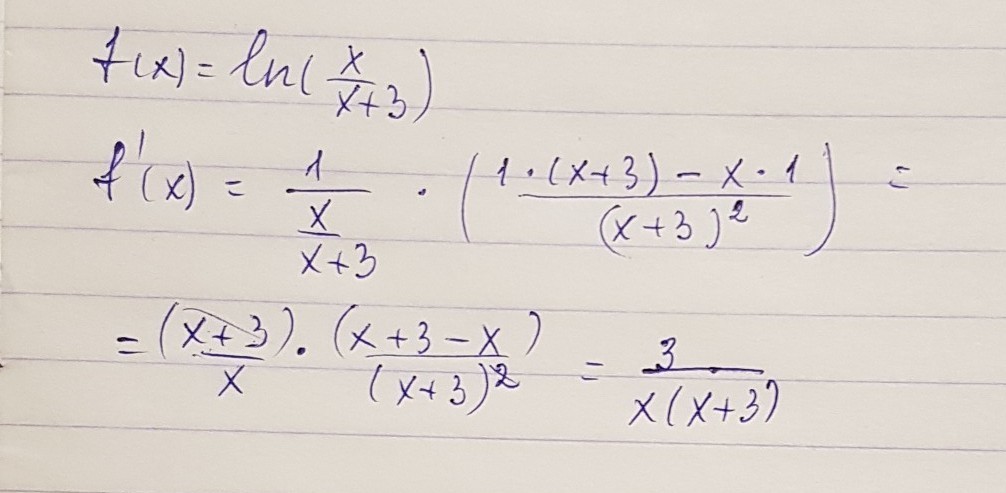 f(x) = ln(x/(x+3))
f'(x) = 1/(x/(x+3)) · ((1·(x+3) - x·1)/(x+3)²) =
= (x+3)/x · (x+3-x)/(x+3)² = 3/(x(x+3))